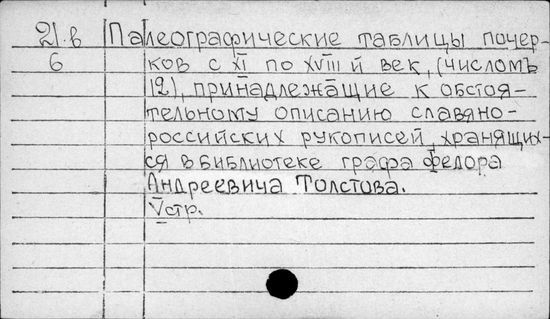 21.в Палеографические таблицы почер-
6 ков с XI по XVIII й век, (числомъ
12), принадлежащие к обстоя-
тельному описанию славяно-
российских рукописей, хранящих-
ся в библиотеке графа Федора
Андреевича Толстова.
V стр.